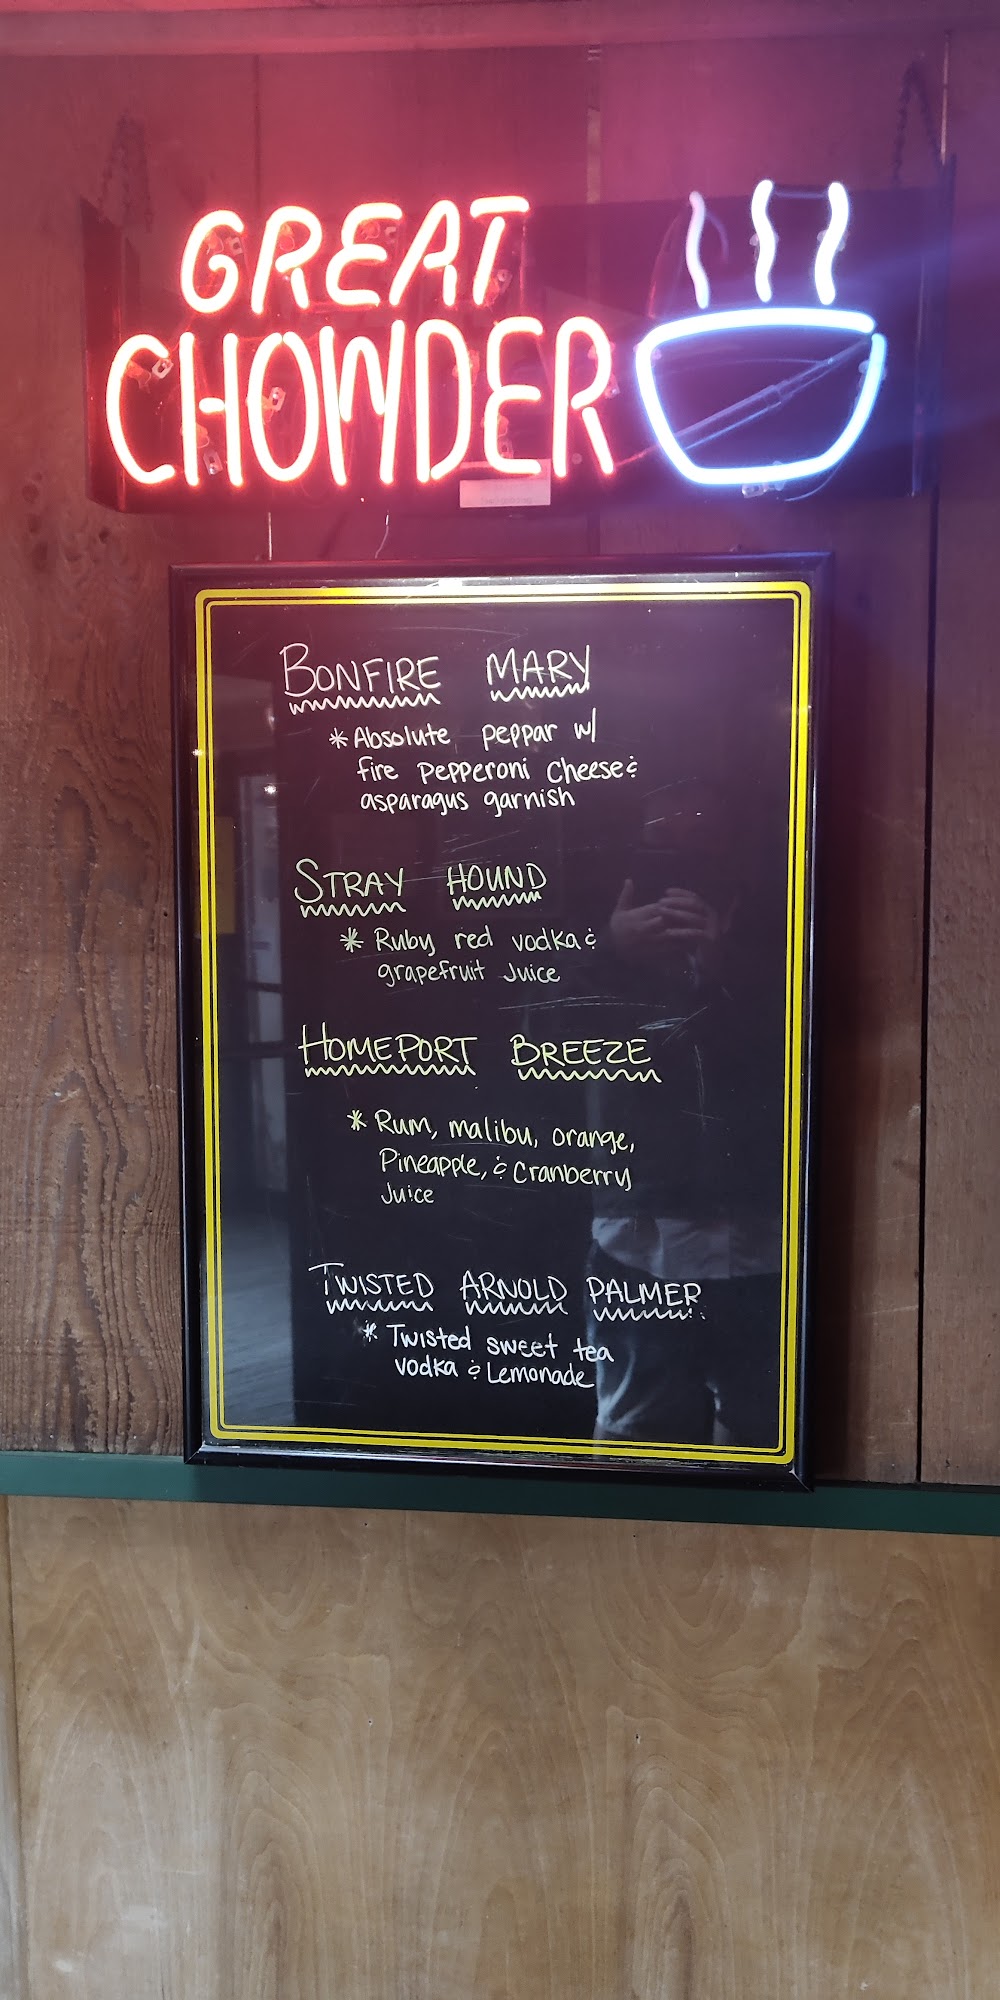 GREAT
CHOWDER
BONFIRE MARY
* Absolute peppar w/
fire pepperoni cheese &
asparagus garnish
STRAY HOUND
* Ruby red vodka &
grapefruit Juice
HOMEPORT BREEZE
* Rum, malibu, orange,
Pineapple, & Cranberry
Juice
TWISTED ARNOLD PALMER
* Twisted sweet tea
vodka & Lemonade